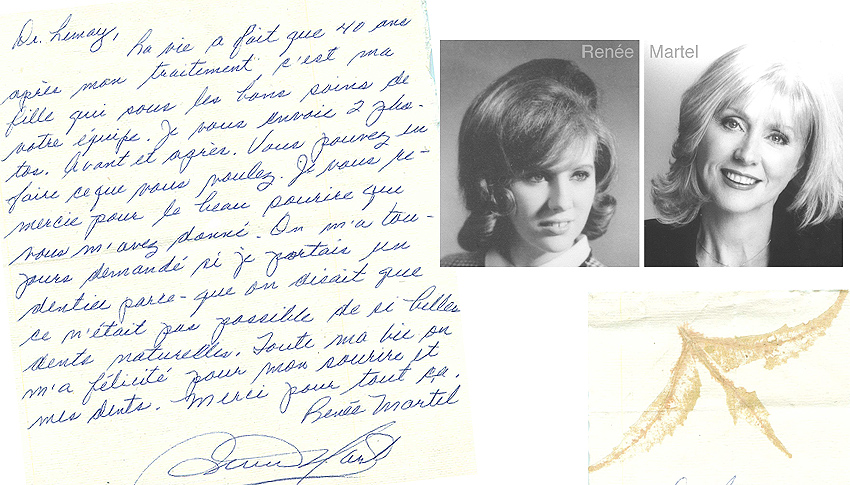 Dr. Lemay,
La vie a fait que 40 ans
après mon traitement c'est ma
fille qui sous les bons soins de
votre équipe. Je vous envois 2 pho-
tos. Avant et après. Vous pouvez en
faire ce que vous voulez. Je vous re-
mercie pour le beau sourire que
vous m'avez donné. On m'a tou-
jours demandé si je portais un
dentier parce-que on disait que
ce n'était pas possible de si belles
dents naturelles. Toute ma vie on
m'a félicité pour mon sourire et
mes dents. Merci pour tout ça.
Renée Martel
Renée Martel